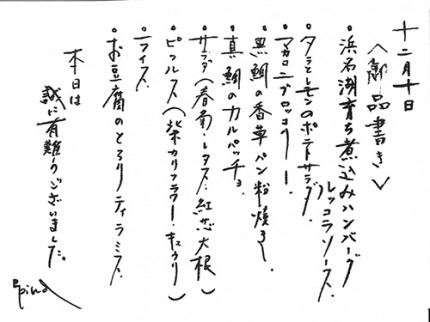 十二月十日
＜御品書き＞
・浜名湖育ち煮込みハンバーグ
ルッコラソース.
・タラとレモンのポテトサラダ.
・マカロニブロッコリー.
・黒鯛の香草パン粉焼き.
・真鯛のカルパッチョ.
サラダ(春菊・レタス・紅芯大根)
・ピクルス(紫カリフラワー・キュウリ)
・ライス.
・お豆腐のとろりティラミス.
本日は
誠に有難うございました。